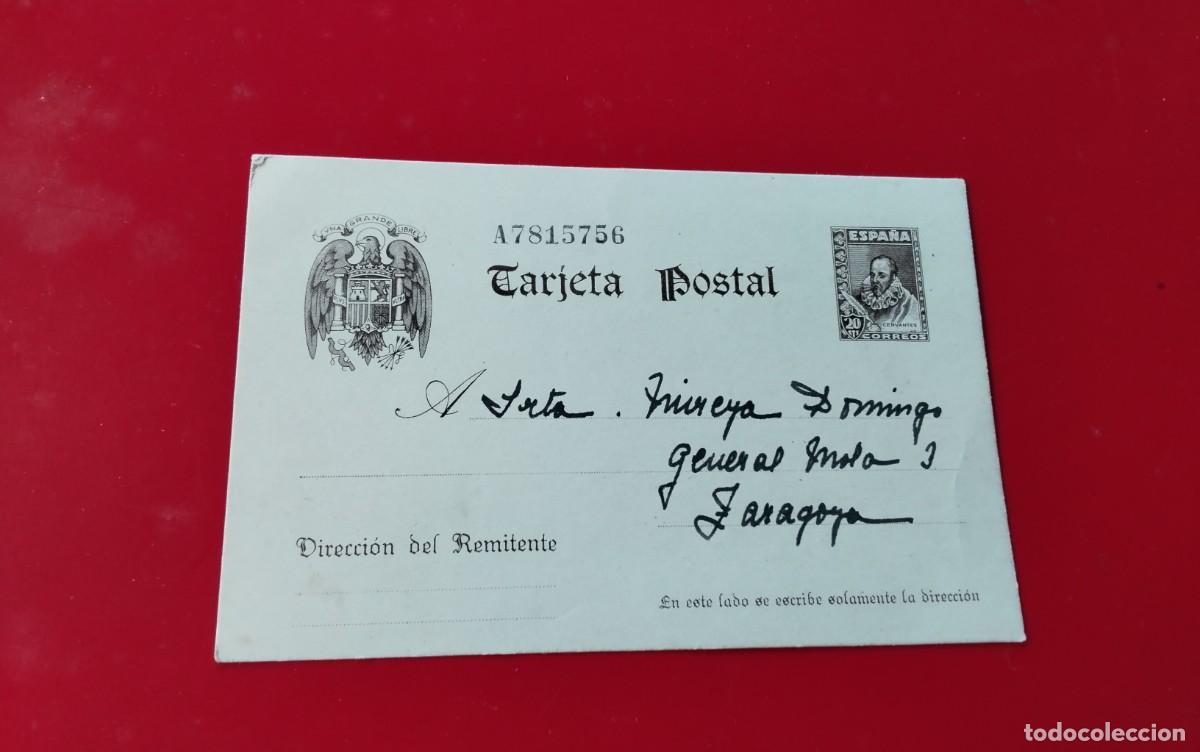 VNA GRANDE LIBRE
A7815756
Tarjeta Postal
ESPAÑA
20
CERVANTES
CORREOS
A Srta. Mireya Domingo
General Mola 3
Zaragoza
Dirección del Remitente
En este lado se escribe solamente la dirección
todocoleccion